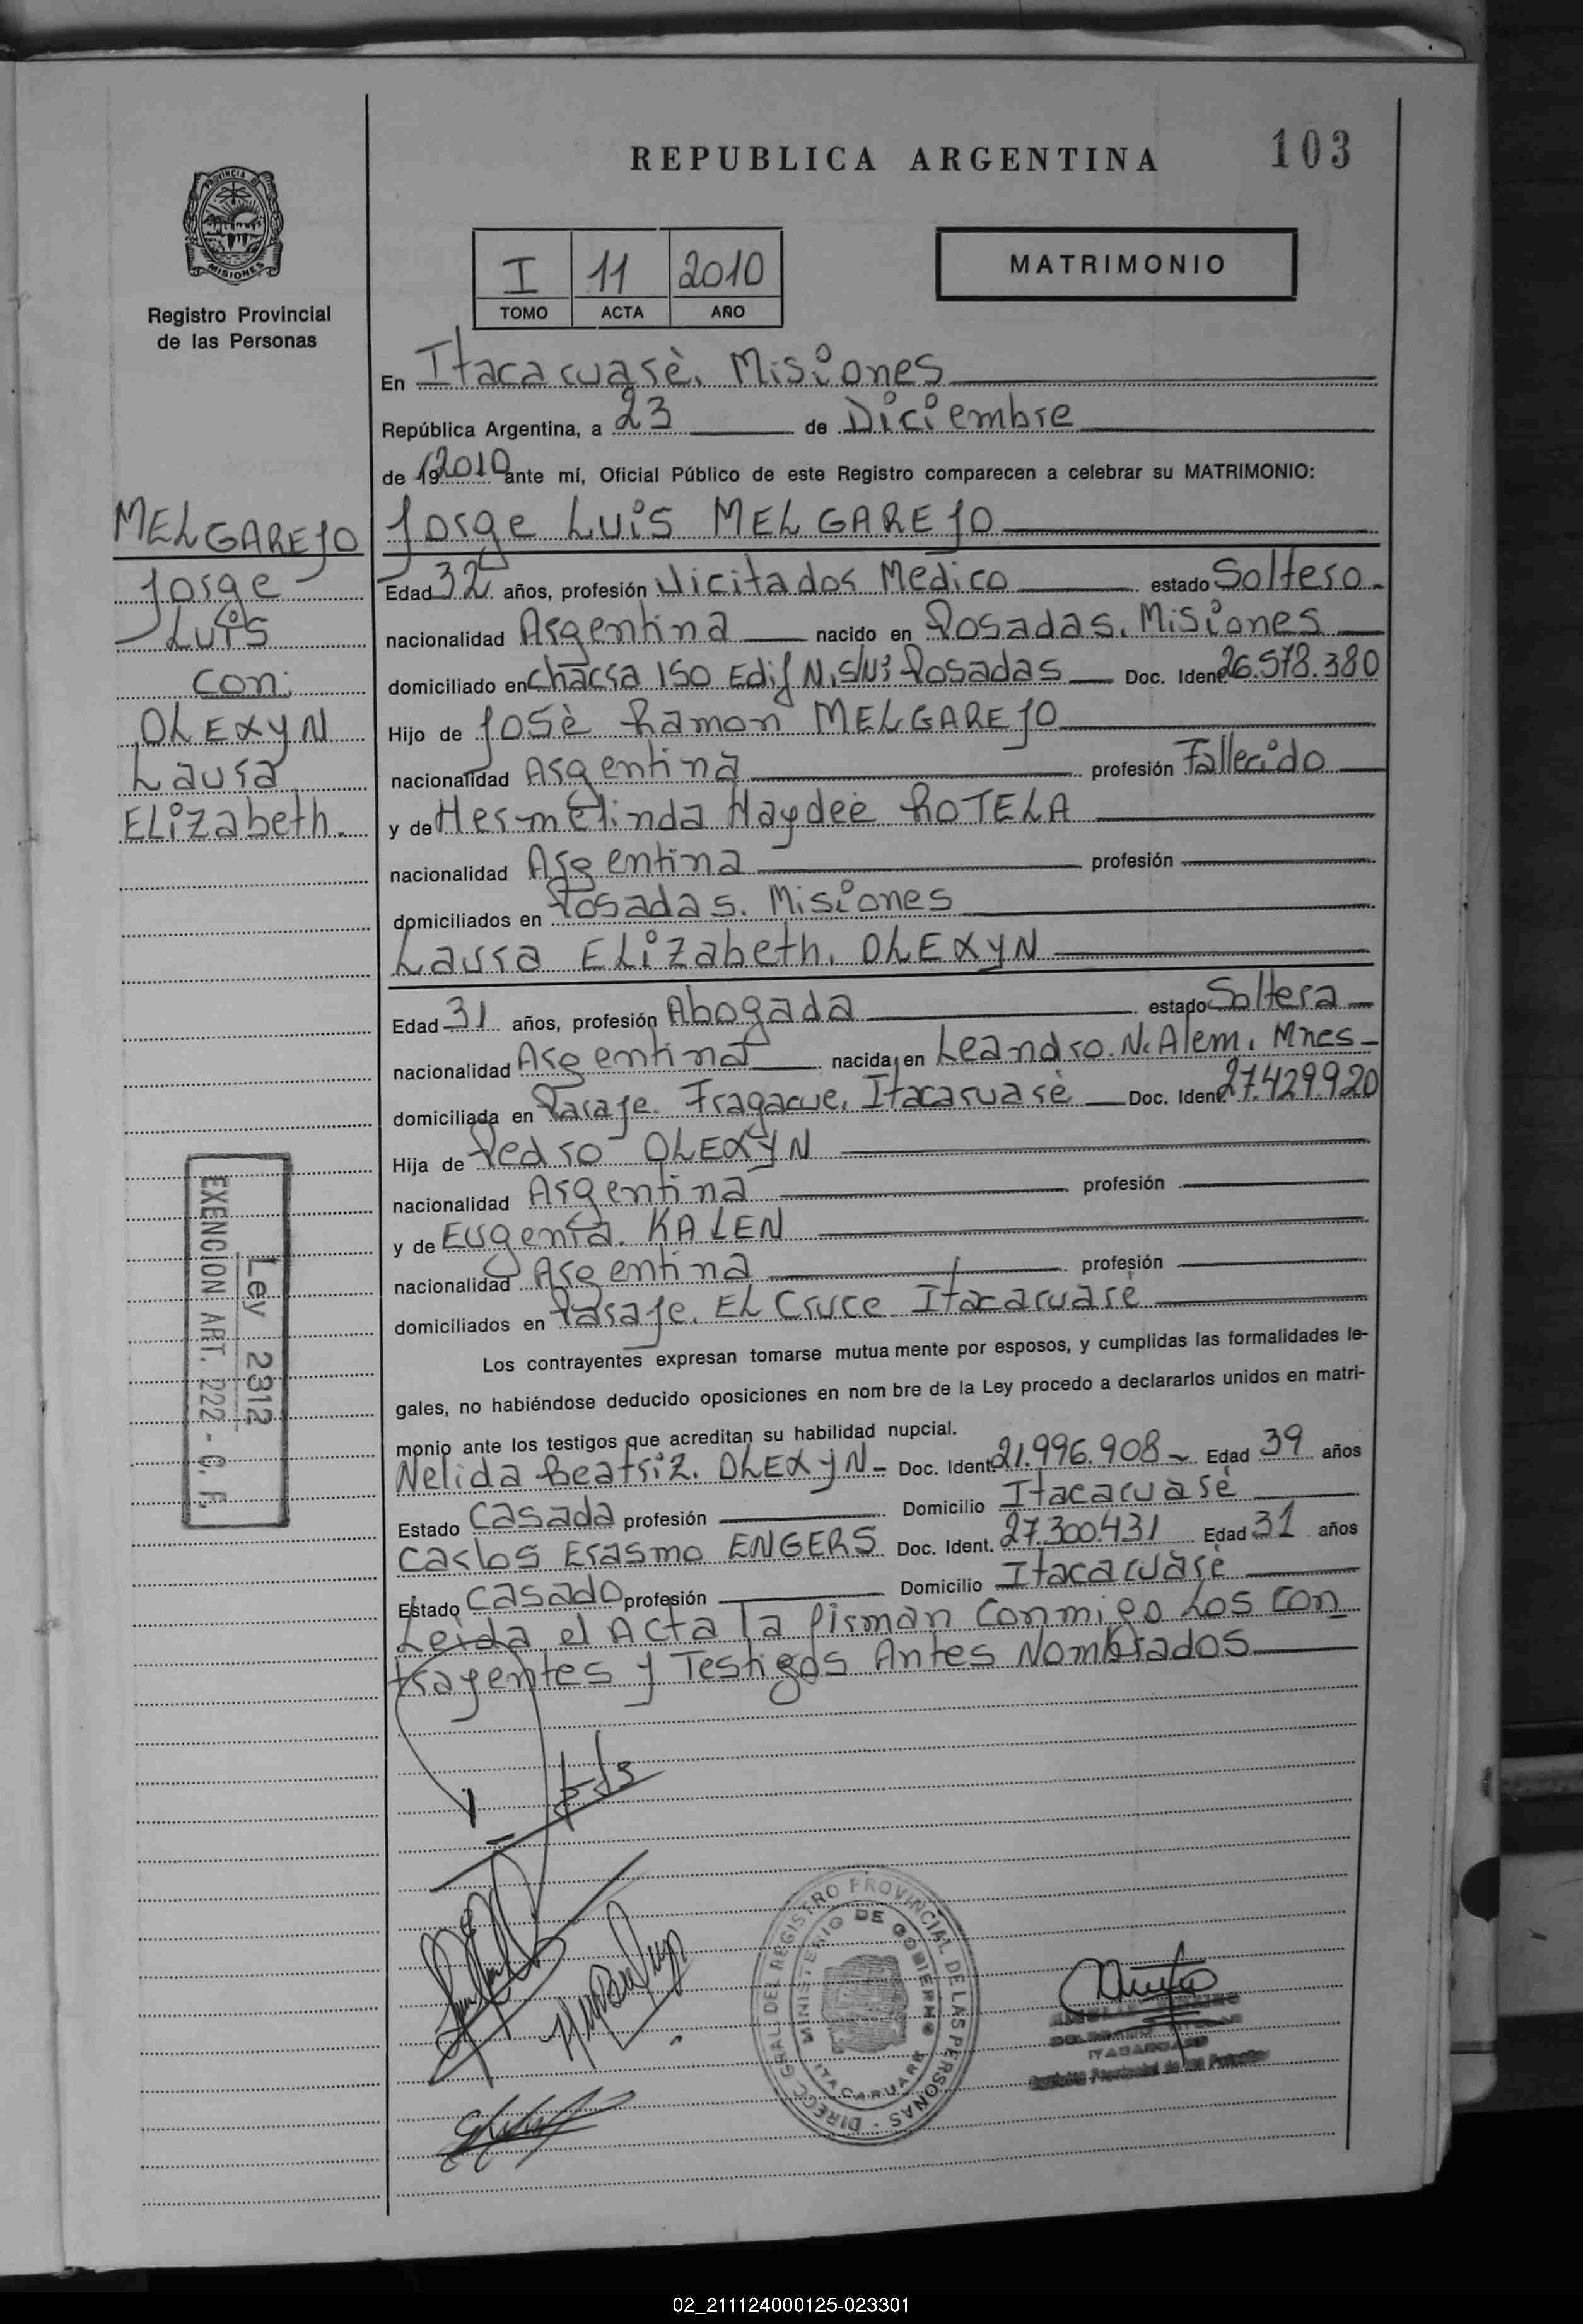 REPUBLICA ARGENTINA
103
PROVINCIA D
MISIONES
Registro Provincial
de las Personas
I 11 2010
TOMO ACTA AÑO
MATRIMONIO
En Itacaruarè. Misiones
República Argentina, a 23 de Diciembre
de 192010 ante mí, Oficial Público de este Registro comparecen a celebrar su MATRIMONIO:
MELGAREJO
Jorge
Luis
con:
OLEXYN
Laura
ELizabeth.
Jorge Luis MELGAREJO
Edad 32 años, profesión Vicitador Medico estado Soltero
nacionalidad Argentina nacido en Posadas. Misiones
domiciliado en chacra 150 Edif N. s/Nº Posadas Doc. Ident. 26.578.380
Hijo de Josè Ramon MELGAREJO
nacionalidad Argentina profesión Fallecido
y de Hermelinda Haydeè ROTELA
nacionalidad Argentina profesión
domiciliados en Posadas. Misiones
Laura ELizabeth. OLEXYN
Edad 31 años, profesión Abogada estado Soltera
nacionalidad Argentina nacida en Leandro. N. Alem. Mnes
domiciliada en Paraje. Itacaruarè Doc. Ident. 27.429.920
Hija de Pedro OLEXYN
nacionalidad Argentina profesión
y de Eugenia. KALEN
nacionalidad Argentina profesión
domiciliados en Paraje. EL Cruce Itacaruarè
Los contrayentes expresan tomarse mutua mente por esposos, y cumplidas las formalidades le-
gales, no habiéndose deducido oposiciones en nom bre de la Ley procedo a declararlos unidos en matri-
monio ante los testigos que acreditan su habilidad nupcial.
Nelida Beatriz. OLEXYN Doc. Ident. 21.996.908 Edad 39 años
Estado Casada profesión Domicilio Itacaruarè
Carlos Erasmo ENGERS Doc. Ident. 27.300.431 Edad 31 años
Estado Casado profesión Domicilio Itacaruarè
Leida el Acta la firman Conmigo Los con
trayentes y Testigos Antes Nombrados
Ley 2312
EXENCION ART. 222 - C. F.
DIRECC. GRAL. DEL REGISTRO PROVINCIAL DE LAS PERSONAS
MINISTERIO DE GOBIERNO
ITACARUARE
ITACARUARE
02_211124000125-023301